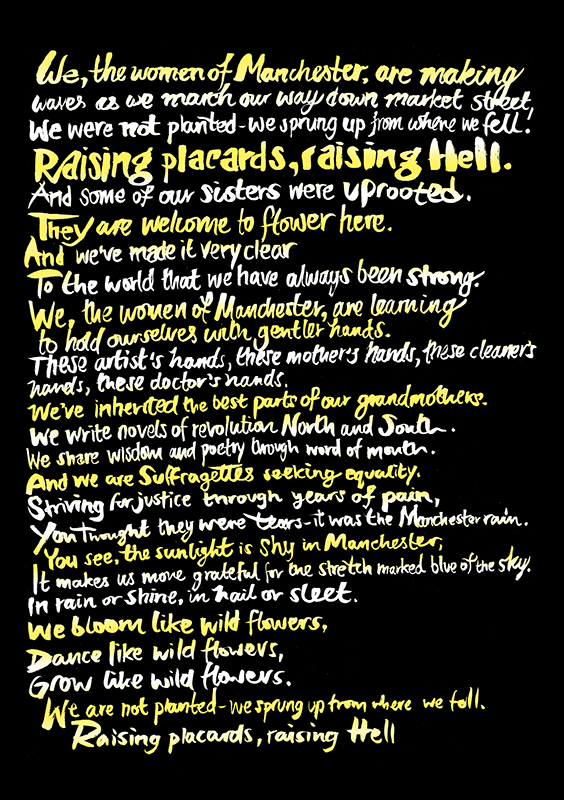 We, the women of Manchester, are making
waves as we march our way down market street,
We were not planted - we sprung up from where we fell!
Raising placards, raising Hell.
And some of our sisters were uprooted.
They are welcome to flower here.
And we've made it very clear
To the world that we have always been strong.
We, the women of Manchester, are learning
to hold ourselves with gentler hands.
These artist's hands, these mother's hands, these cleaner's
hands, these doctor's hands.
We've inherited the best parts of our grandmothers.
We write novels of revolution North and South.
We share wisdom and poetry through word of mouth.
And we are Suffragettes seeking equality.
Striving for justice through years of pain,
You Thought they were tears - it was the Manchester rain.
You see, the sunlight is shy in Manchester,
It makes us more grateful for the stretch marked blue of the sky.
In rain or shine, in hail or sleet.
We bloom like wild flowers,
Dance like wild flowers,
Grow like wild flowers.
We are not planted - we sprung up from where we fell.
Raising placards, raising Hell